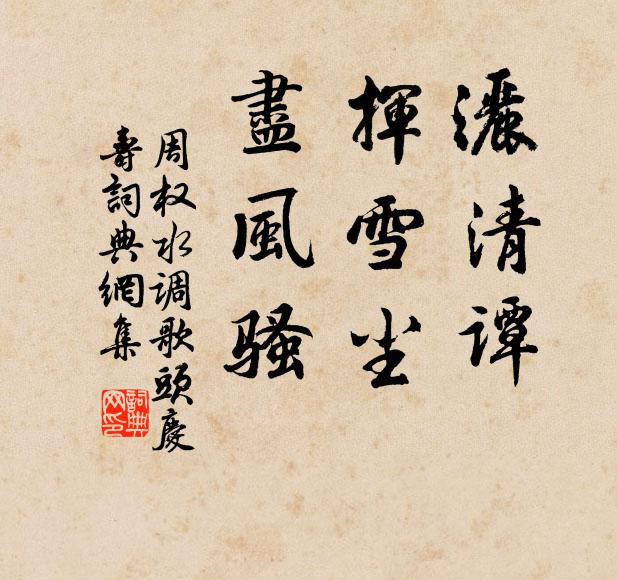 灑清譚
揮雪尘
盡風騷
周权水调歌頭慶
壽詞典網集
詞典网印